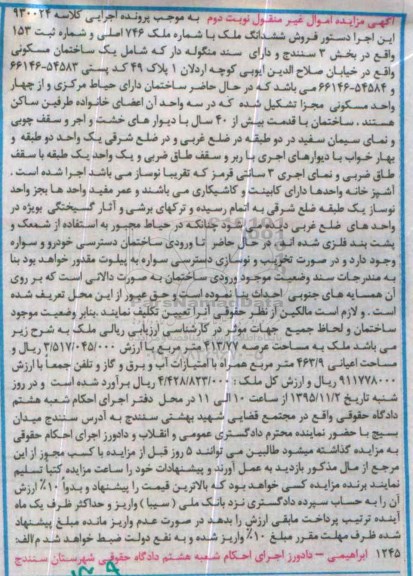 آگهی مزایده اموال غیر منقول نوبت دوم به موجب پرونده اجرایی کلاسه ۹۳۰۰۲۴
این اجرا دستور فروش ششدانگ ملک با شماره ملک ۷۴۶ اصلی و شماره ثبت ۱۵۳
واقع در بخش ۳ سنندج و دارای سند منگوله دار که شامل یک ساختمان مسکونی
واقع در خیابان صلاح الدین ایوبی کوچه اردلان ۱ پلاک ۴۹ کد پستی ۵۴۵۸۳-۶۶۱۴۶
و ۵۴۵۸۴-۶۶۱۴۶ می باشد که در حال حاضر ساختمان دارای حیاط مرکزی و از چهار
واحد مسکونی مجزا تشکیل شده که در سه واحد آن اعضای خانواده طرفین ساکن
هستند . ساختمان با قدمت بیش از ۴۰ سال با دیوار های خشت و اجر و سقف چوبی
و نمای سیمان سفید در دو طبقه در ضلع غربی و در ضلع شرقی یک واحد دو طبقه و
بهار خواب با دیوارهای اجری با ربر و سقف طاق ضربی و یک واحد یک طبقه با سقف
طاق ضربی و نمای اجری ۳ سانتی قرمز که تقریبا نوساز می باشد اجرا شده است .
آشپز خانه واحدها دارای کابینت و کاشیکاری می باشند و عمر مفید واحد ها بجز واحد
نوساز یک طبقه ضلع شرقی به اتمام رسیده و ترکهای برشی و آثار گسیختگی بویژه در
واحد های ضلع غربی دیده می شود چنانکه در حیاط مجبور به استفاده از شمعک و
پشت بند فلزی شده اند در حال حاضر تا ورودی ساختمان دسترسی خودرو و سواره
وجود دارد و در صورت تخریب و نوسازی دسترسی سواره به پیلوت مقدور خواهد بود بنا
به مندرجات سند وضعیت موجود ورودی ساختمان به صورت دالانی است که بر روی
آن همسایه های جنوبی احداث بنا نموده است و حق عبور از این محل تعریف شده
است . و لازم است مالکین از نظر حقوقی آنرا تعیین تکلیف نمایند .بنابر وضعیت موجود
ساختمان و لحاظ جمیع جهات موثر در کارشناسی ارزیابی ریالی ملک به شرح زیر
می باشد ملک به مساحت عرصه ۴۱۳/۷۷ متر مربع با ارزش ۳/۵۱۷/۰۴۵/۰۰۰ ریال و
مساحت اعیانی ۴۶۳/۹ متر مربع همراه با امتیازات آب و برق و گاز و تلفن جمعاً با ارزش
۹۱۱۷۷۸۰۰۰ ریال و ارزش کل ملک : ۴/۴۲۸/۸۲۳/۰۰۰ ریال برآورد شده است و در روز
شنبه تاریخ ۱۳۹۵/۱۱/۲ از ساعت ۱۰ الی ۱۱ در محل دفتر اجرای احکام شعبه هشتم
دادگاه حقوقی واقع در مجتمع قضایی شهید بهشتی سنندج به آدرس سنندج میدان
بسیج با حضور نماینده محترم دادگستری عمومی و انقلاب و دادورز اجرای احکام حقوقی
به مزایده گذاشته میشود طالبین می توانند ۵ روز قبل از مزایده با کسب مجوز از این
مرجع از مال مذکور بازدید به عمل آورند و پیشنهادات خود را ساعت مزایده کتباً تسلیم
نمایند برنده مزایده کسی خواهد بود که بالاترین قیمت را پیشنهاد و بدوا ۱۰٪ ارزش
آن را به حساب سپرده دادگستری نزد بانک ملی ( سیبا ) واریز و حداکثر ظرف یک ماه
آینده ترتیب پرداخت مابقی ارزش را بدهد در صورت عدم واریز مانده مبلغ پیشنهاد
شده ظرف مهلت مقرر مبلغ ۱۰٪ واریز شده و به نفع دولت ضبط خواهد شد م الف:
۱۲۴۵ ابراهیمی – دادورز اجرای احکام شعبه هشتم دادگاه حقوقی شهرستان سنندج